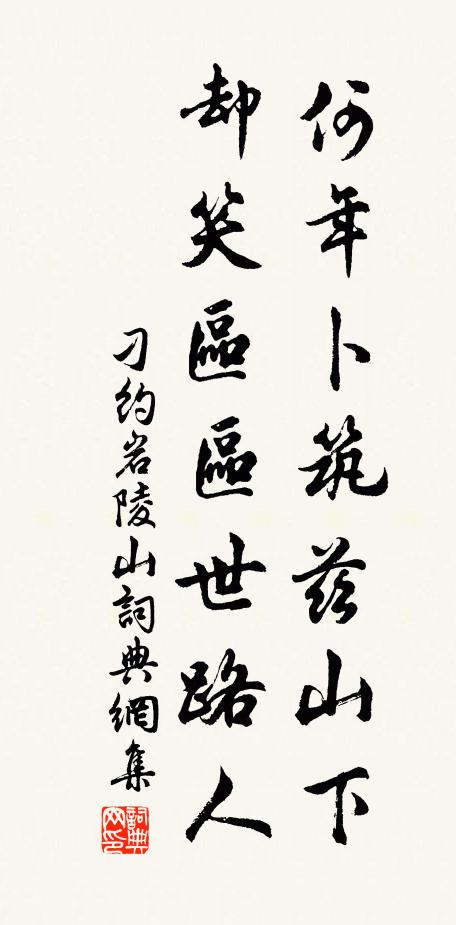 何年卜筑茲山下
却笑區區世路人
刁約岩陵山詞典網集
詞典网印